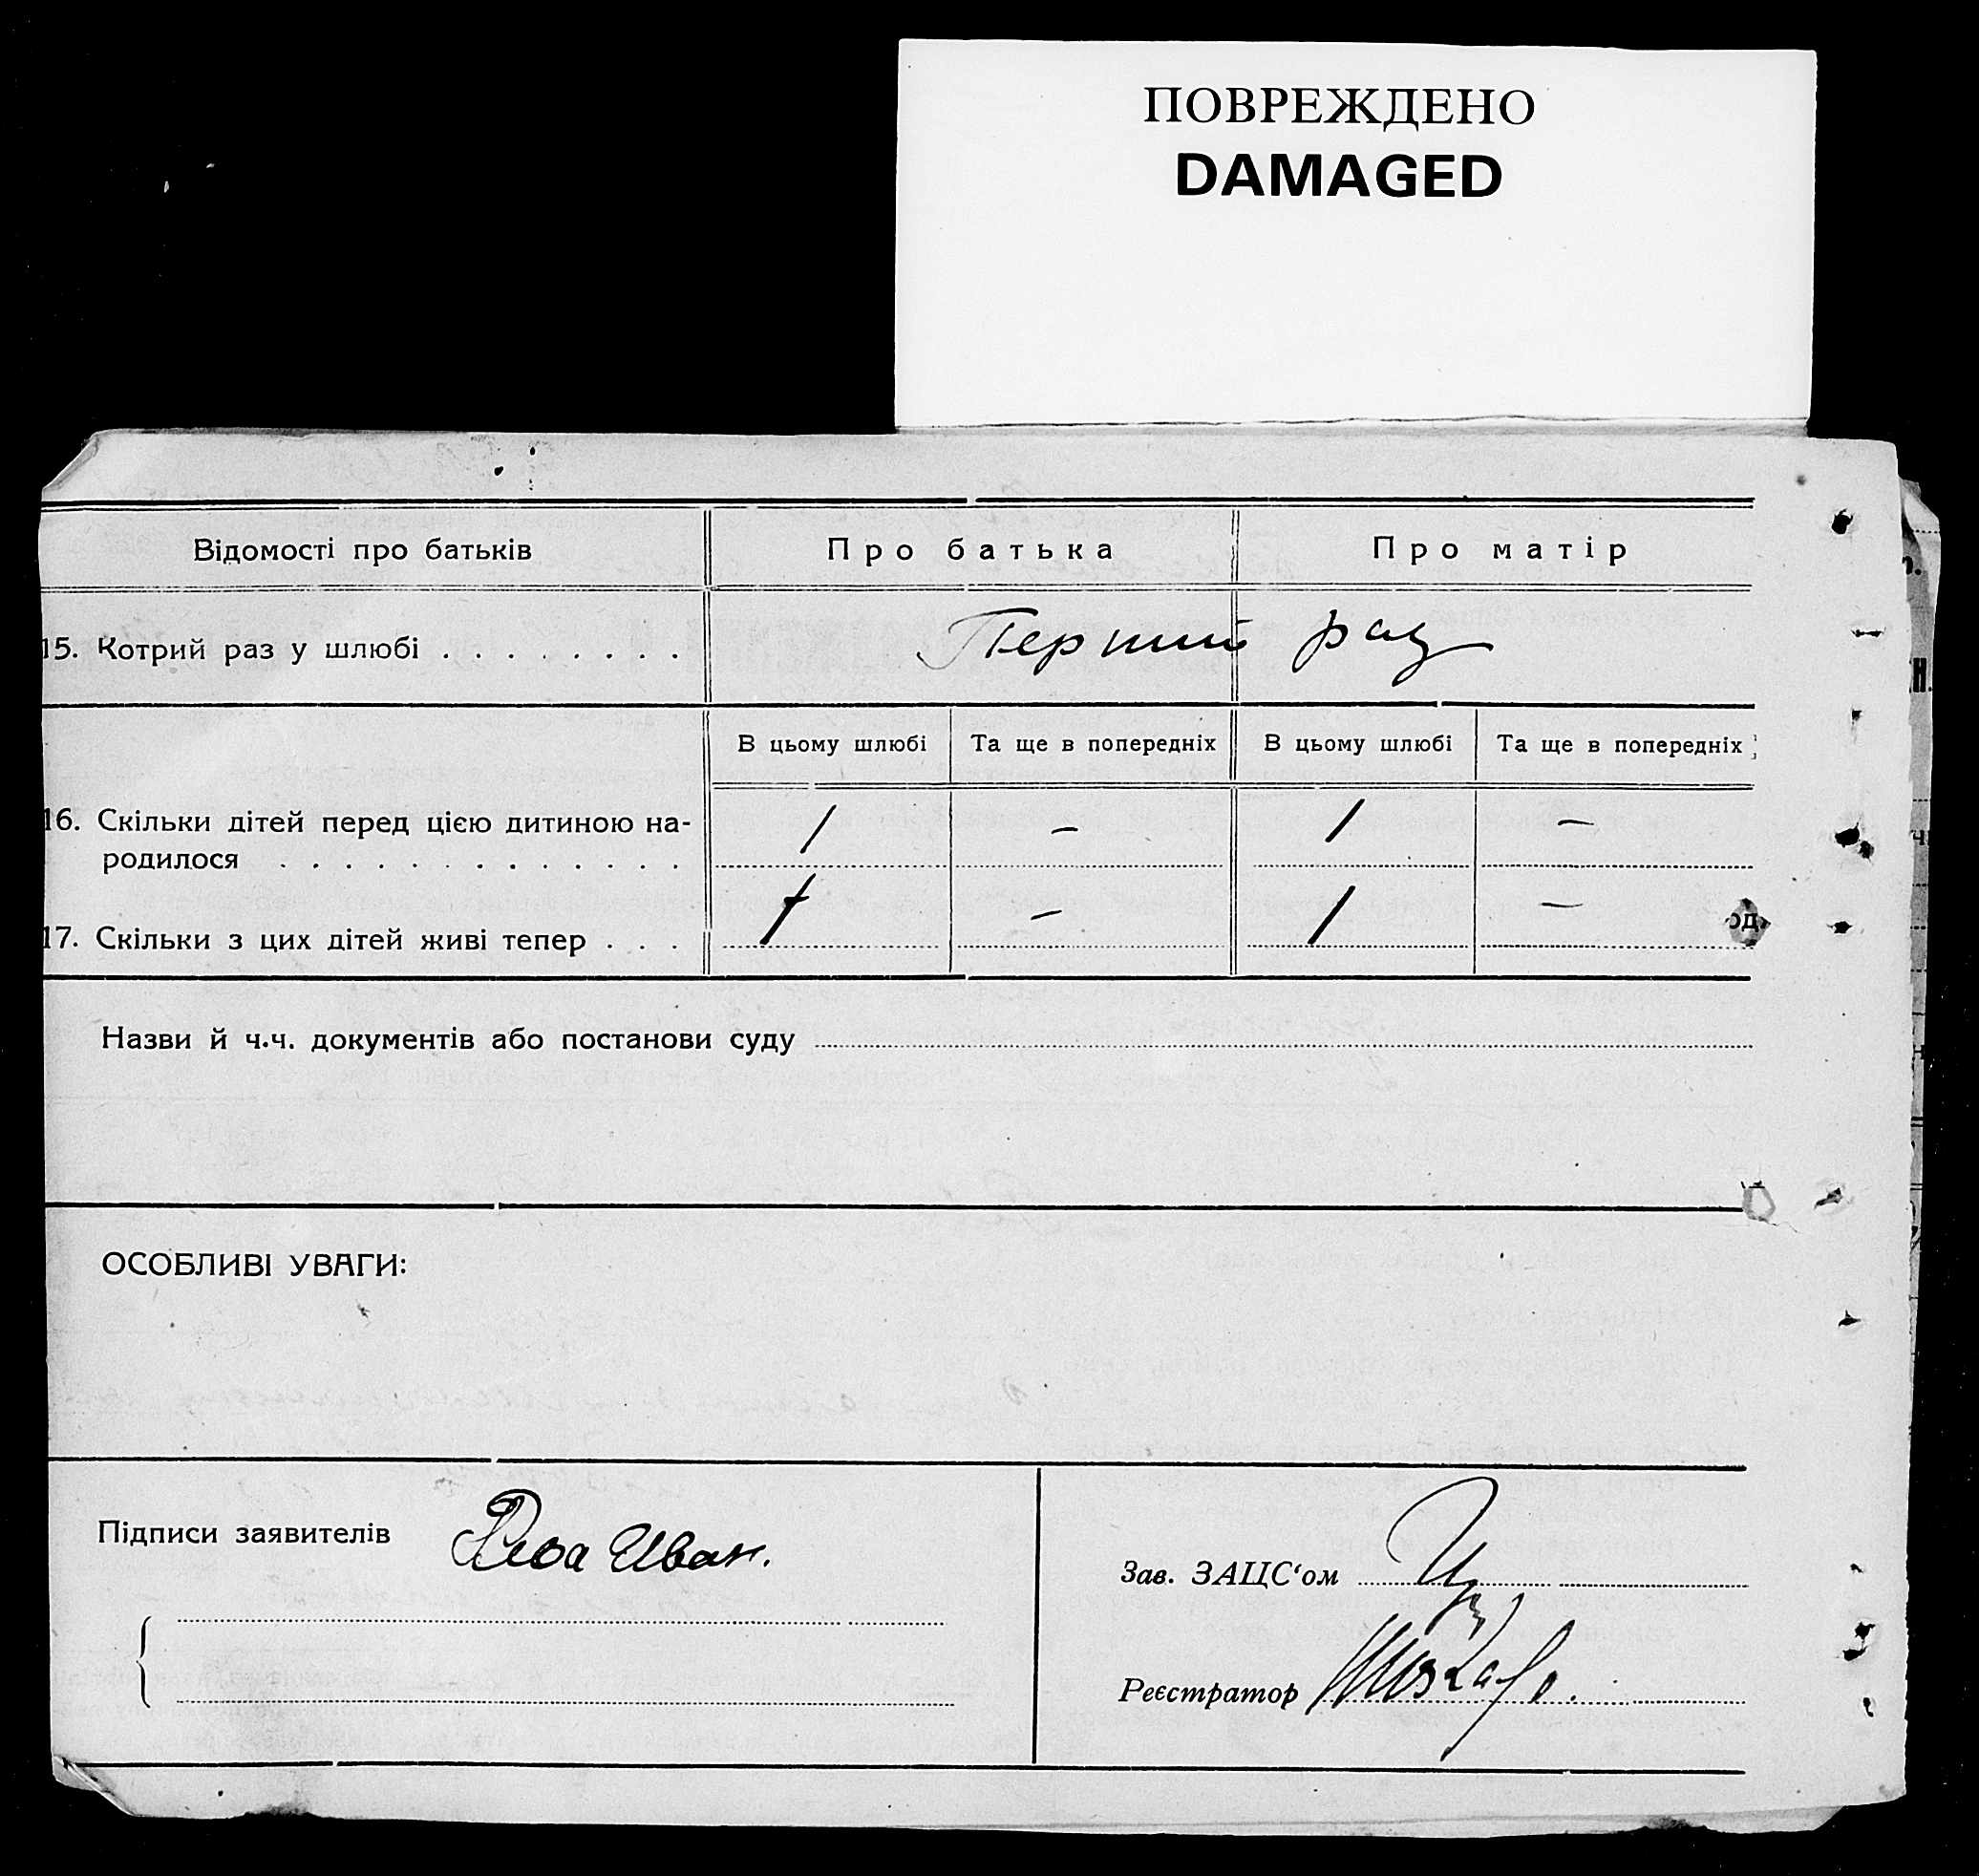 ПОВРЕЖДЕНО
DAMAGED
Відомості про батьків Про батька Про матір
15. Котрий раз у шлюбі . . . . . . . . Перший раз
В цьому шлюбі Та ще в попередніх В цьому шлюбі Та ще в попередніх
16. Скільки дітей перед цією дитиною на-
родилося . . . . . . . . . . . . . 1 — 1 —
17. Скільки з цих дітей живі тепер . . . 1 — 1 —
Назви й ч.ч. документів або постанови суду
ОСОБЛИВІ УВАГИ:
Підписи заявителів Иван.
Зав. ЗАЦС‘ом
Реєстратор